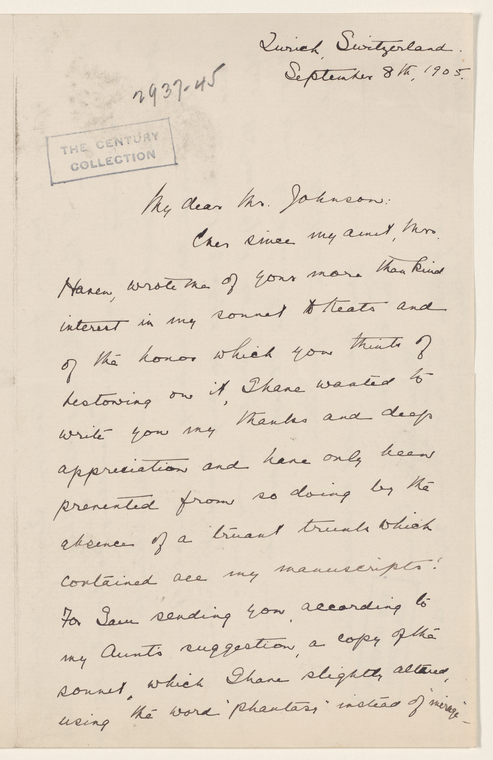 Zurich, Switzerland.
September 8th, 1905.
2937-45
THE CENTURY
COLLECTION
My dear Mr. Johnson:
Ever since my aunt, Mrs.
Haven, wrote me of your more than kind
interest in my sonnet to Keats and
of the honor which you think of
bestowing on it, I have wanted to
write you my thanks and deep
appreciation and have only been
prevented from so doing by the
absence of a truant trunk which
contained all my manuscripts!
For I am sending you, according to
my Aunt's suggestion, a copy of the
sonnet, which I have slightly altered,
using the word 'phantasy' instead of 'mirage' –